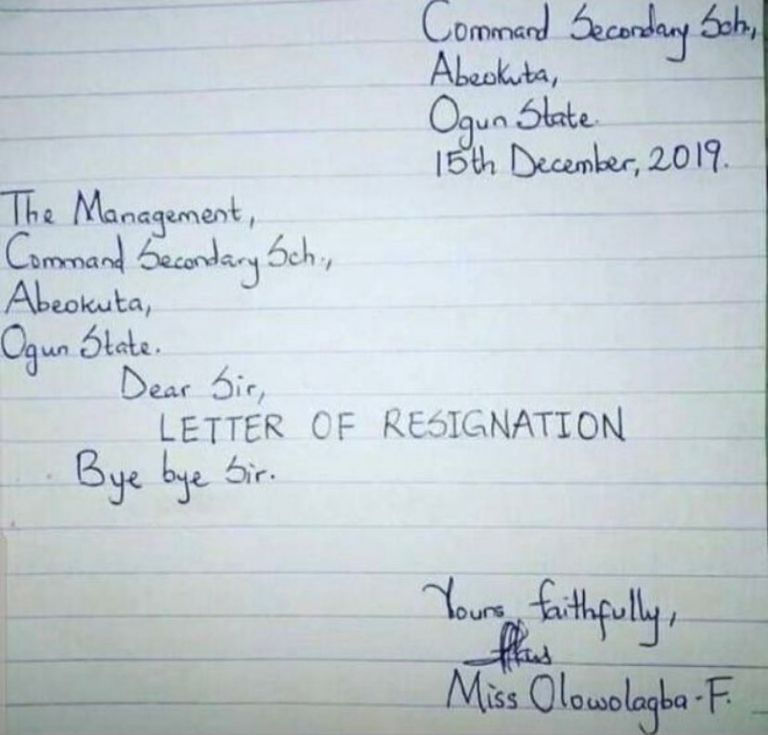 Command Secondary Sch.,
Abeokuta,
Ogun State.
15th December, 2019.
The Management,
Command Secondary Sch.,
Abeokuta,
Ogun State.
Dear Sir,
LETTER OF RESIGNATION
Bye bye Sir.
Yours faithfully,
Miss Olowolagba-F.